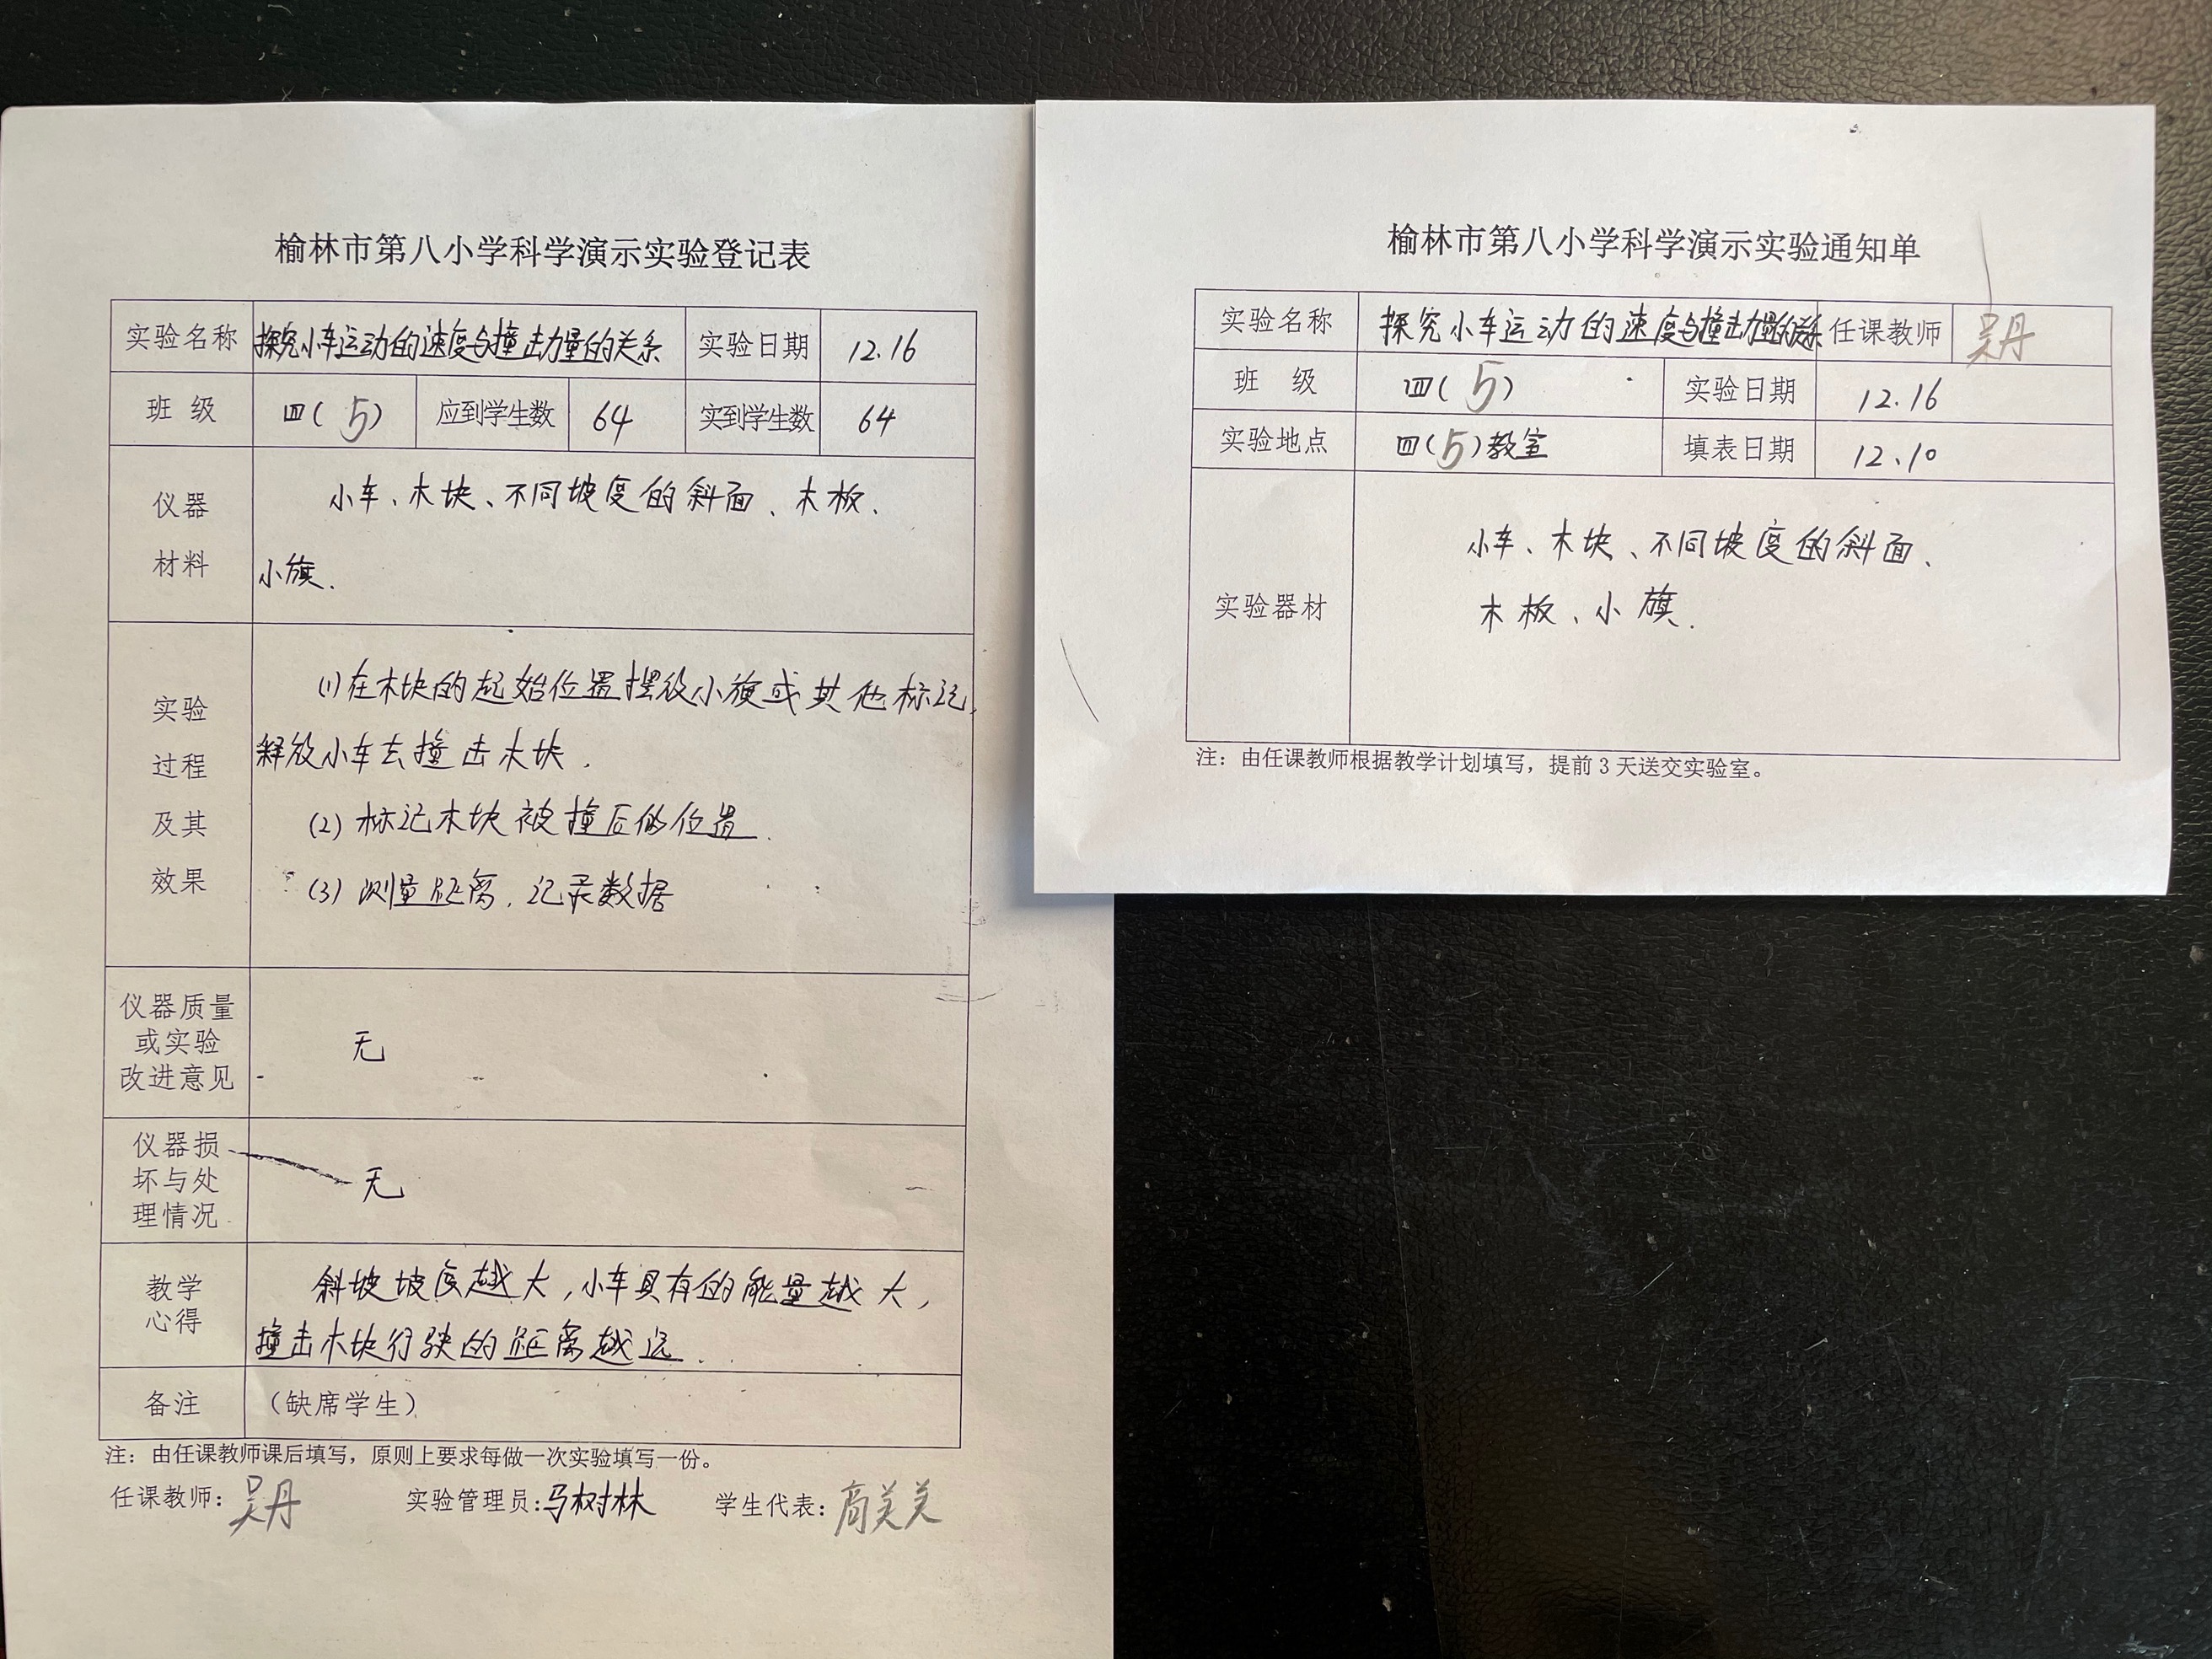 榆林市第八小学科学演示实验登记表
实验名称 探究小车运动的速度与撞击力量的关系 实验日期 12.16
班级 四(5) 应到学生数 64 实到学生数 64
仪器 小车、木块、不同坡度的斜面、木板、
材料 小旗.
实验 (1)在木块的起始位置摆放小旗或其他标记,
过程 释放小车去撞击木块.
及其 (2)标记木块被撞后的位置.
效果 (3)测量距离,记录数据
仪器质量
或实验 无
改进意见
仪器损
坏与处 无
理情况
教学 斜坡坡度越大,小车具有的能量越大,
心得 撞击木块行驶的距离越远.
备注 (缺席学生)
注：由任课教师课后填写，原则上要求每做一次实验填写一份。
任课教师：吴丹 实验管理员：马树林 学生代表：高美美
榆林市第八小学科学演示实验通知单
实验名称 探究小车运动的速度与撞击力量的关系 任课教师 吴丹
班级 四(5) 实验日期 12.16
实验地点 四(5)教室 填表日期 12.10
小车、木块、不同坡度的斜面、
实验器材 木板、小旗.
注：由任课教师根据教学计划填写，提前3天送交实验室。